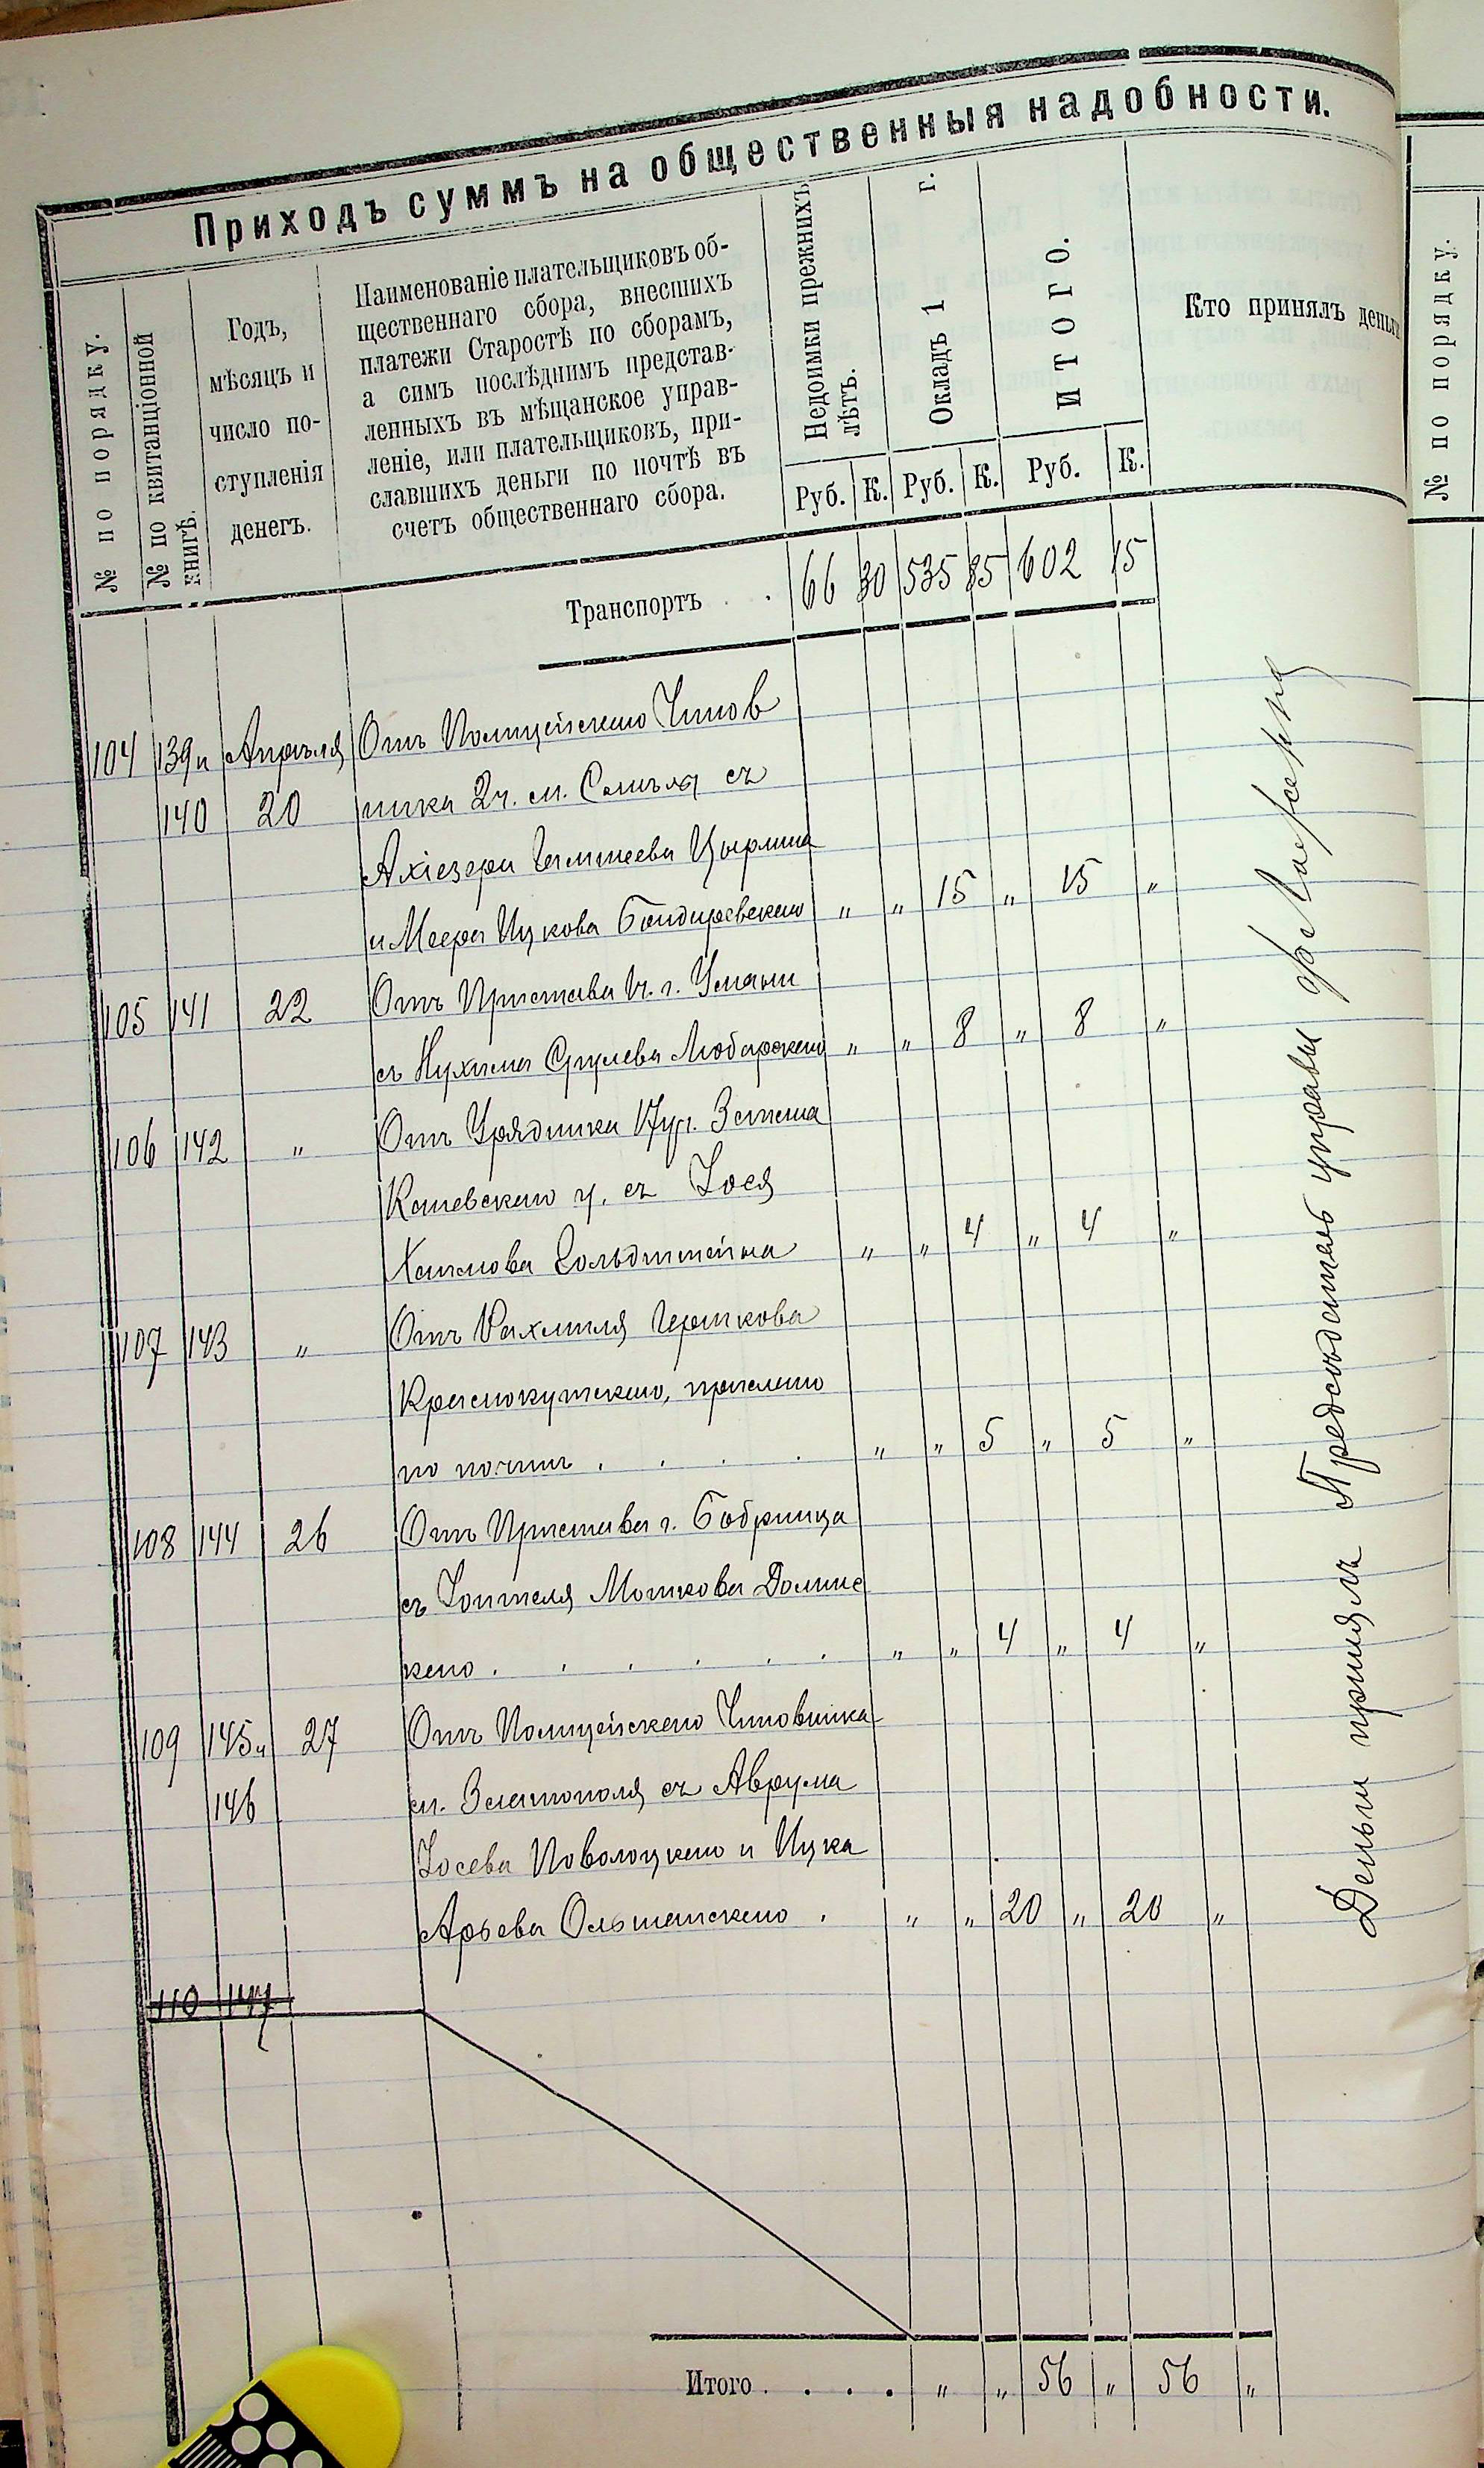 Приходъ суммъ на общественныя надобности.
№ по порядку.
№ по квитанціонной
книгѣ.
Годъ,
мѣсяцъ и
число по-
ступленія
денегъ.
Наименованіе плательщиковъ об-
щественнаго сбора, внесшихъ
платежи Старостѣ по сборамъ,
а симъ послѣднимъ представ-
ленныхъ въ мѣщанское управ-
леніе, или плательщиковъ, при-
славшихъ деньги по почтѣ въ
счетъ общественнаго сбора.
Недоимки прежнихъ
лѣтъ.
Окладъ 1 г.
ИТОГО.
Кто принялъ деньги
Руб. К. Руб. К. Руб. К.
Транспортъ . . 66 30 535 85 602 15
104 139 и Апрѣля Отъ Полицейскаго Чинов
140 20 ника 2 ч. м. Смѣла съ
Ахіезера Цырлина
и Меера Ицкова Бондаревскаго " " 15 " 15 "
105 141 22 Отъ Пристава г. Умани
съ Нухима Сруlева Любарскаго " " 8 " 8 "
106 142 " Отъ Урядника 17 уч.
Каневскаго у. съ Іося
Хаимова Гольдштейна " " 4 " 4 "
107 143 " Отъ Рахмиля Гершкова
Краснокутскаго, прислано
по почтѣ . . . . " " 5 " 5 "
108 144 26 Отъ Пристава г. Бобринца
съ Мошкова Долинс
каго . . . . . . " " 4 " 4 "
109 145 и 27 Отъ Полицейскаго Чиновника
146 м. Златополя съ Аврума
Іосева Поволоцкаго и Ицка
Арьева Ольшанскаго . " " 20 " 20 "
110 147
Итого . . . . " " 56 " 56 "
Деньги принялъ Предсѣдатель управы
№ по порядку.